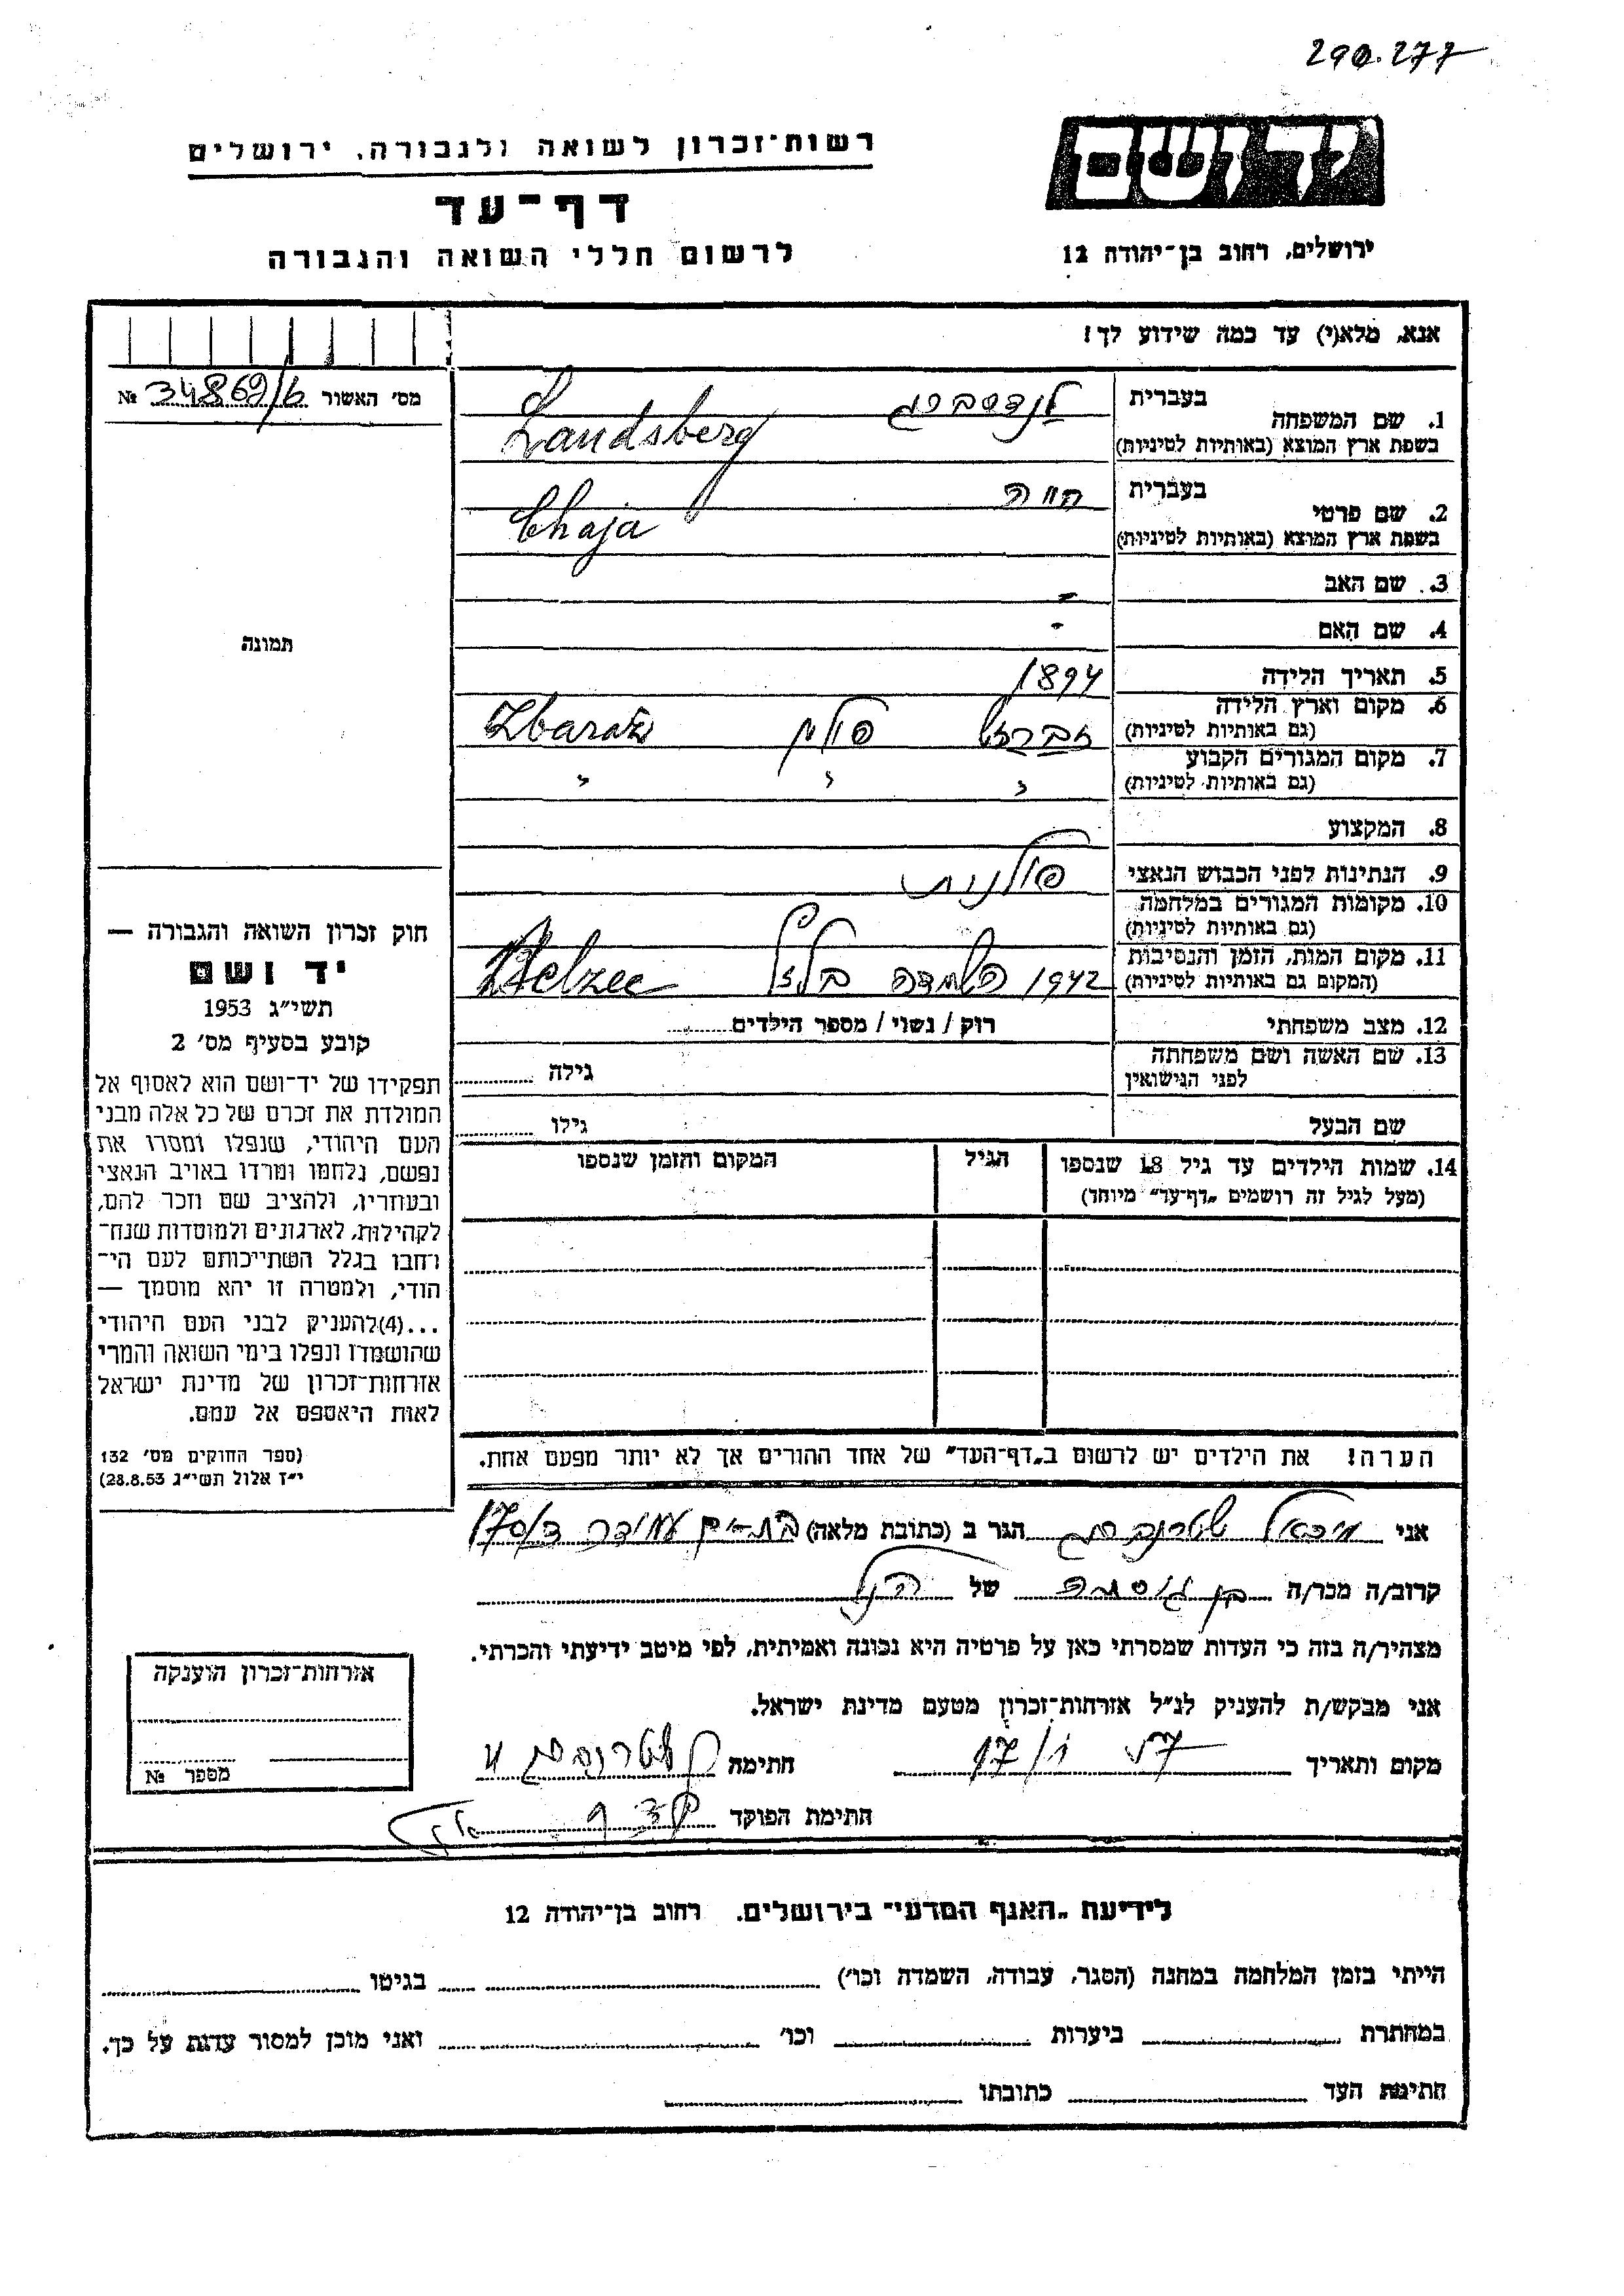 290.277
יד ושם
רשות־זכרון לשואה ולגבורה, ירושלים
דף־עד
ירושלים, רחוב בן־יהודה 12
לרשום חללי השואה והגבורה
אנא, מלא(י) עד כמה שידוע לך!
מס׳ האשור 34869/6 №
1. שם המשפחה בעברית לנדסברג
בשפת ארץ המוצא (באותיות לטיניות) Landsberg
2. שם פרטי בעברית חיה
בשפת ארץ המוצא (באותיות לטיניות) Chaja
3. שם האב -
4. שם האם -
תמונה
5. תאריך הלידה 1894
6. מקום וארץ הלידה
(גם באותיות לטיניות) זברז׳ פולין Zbaraż
7. מקום המגורים הקבוע
(גם באותיות לטיניות) " " "
8. המקצוע
9. הנתינות לפני הכבוש הנאצי פולנית
10. מקומות המגורים במלחמה
(גם באותיות לטיניות)
11. מקום המות, הזמן והנסיבות
(המקום גם באותיות לטיניות) 1942 השמדה בלז׳ץ Belzec
12. מצב משפחתי רוק / נשוי / מספר הילדים
13. שם האשה ושם משפחתה
לפני הנישואין גילה
שם הבעל גילו
14. שמות הילדים עד גיל 18 שנספו הגיל המקום והזמן שנספו
(מעל לגיל זה רושמים „דף־עד״ מיוחד)
חוק זכרון השואה והגבורה —
יד ושם
תשי״ג 1953
קובע בסעיף מס׳ 2
תפקידו של יד־ושם הוא לאסוף אל
המולדת את זכרם של כל אלה מבני
העם היהודי, שנפלו ומסרו את
נפשם, נלחמו ומרדו באויב הנאצי
ובעוזריו, ולהציב שם וזכר להם,
לקהילות, לארגונים ולמוסדות שנח־
רחבו בגלל השתייכותם לעם הי־
הודי, ולמטרה זו יהא מוסמך —
...(4)להעניק לבני העם היהודי
שהושמדו ונפלו בימי השואה והמרי
אזרחות־זכרון של מדינת ישראל
לאות היאספם אל עמם.
(ספר החוקים מס׳ 132
י״ז אלול תשי״ג 28.8.53)
הערה! את הילדים יש לרשום ב„דף־העד״ של אחד ההורים אך לא יותר מפעם אחת.
אני מיכאל שטרנברג הגר ב (כתובת מלאה) בת-ים 170/
קרוב/ה מכר/ה בן של הנ״ל
מצהיר/ה בזה כי העדות שמסרתי כאן על פרטיה היא נכונה ואמיתית, לפי מיטב ידיעתי והכרתי.
אני מבקש/ת להעניק לנ״ל אזרחות־זכרון מטעם מדינת ישראל.
מקום ותאריך חתימה שטרנברג מ
חתימת הפוקד
אזרחות־זכרון הוענקה
מספר №
לידיעת „האגף המדעי״ בירושלים, רחוב בן־יהודה 12
הייתי בזמן המלחמה במחנה (הסגר, עבודה, השמדה וכו׳) בגיטו
במחתרת ביערות וכו׳ ואני מוכן למסור עדות על כך.
חתימת העד כתובתו